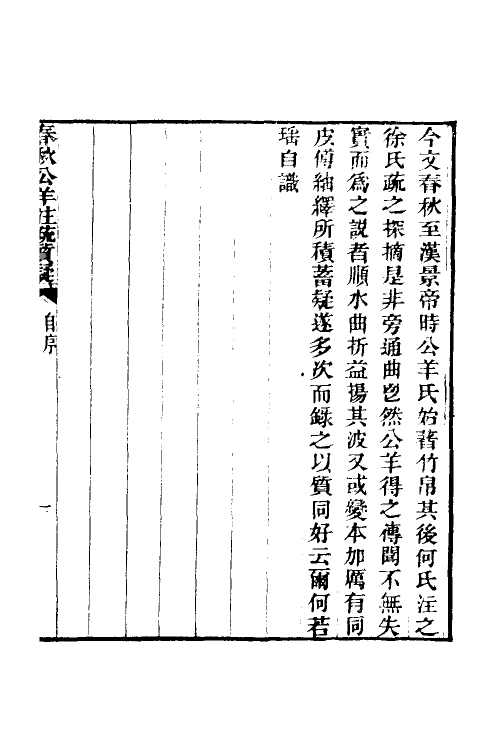 今文春秋至漢景帝時公羊氏始著竹帛其後何氏注之
徐氏疏之探摘是非旁通曲鬯然公羊得之傳聞不無失
實而爲之説者順水曲折益揚其波又或變本加厲有同
皮傅紬繹所積蓄疑遂多次而錄之以質同好云爾何若
瑶自識
春秋公羊注疏質疑
自序
一